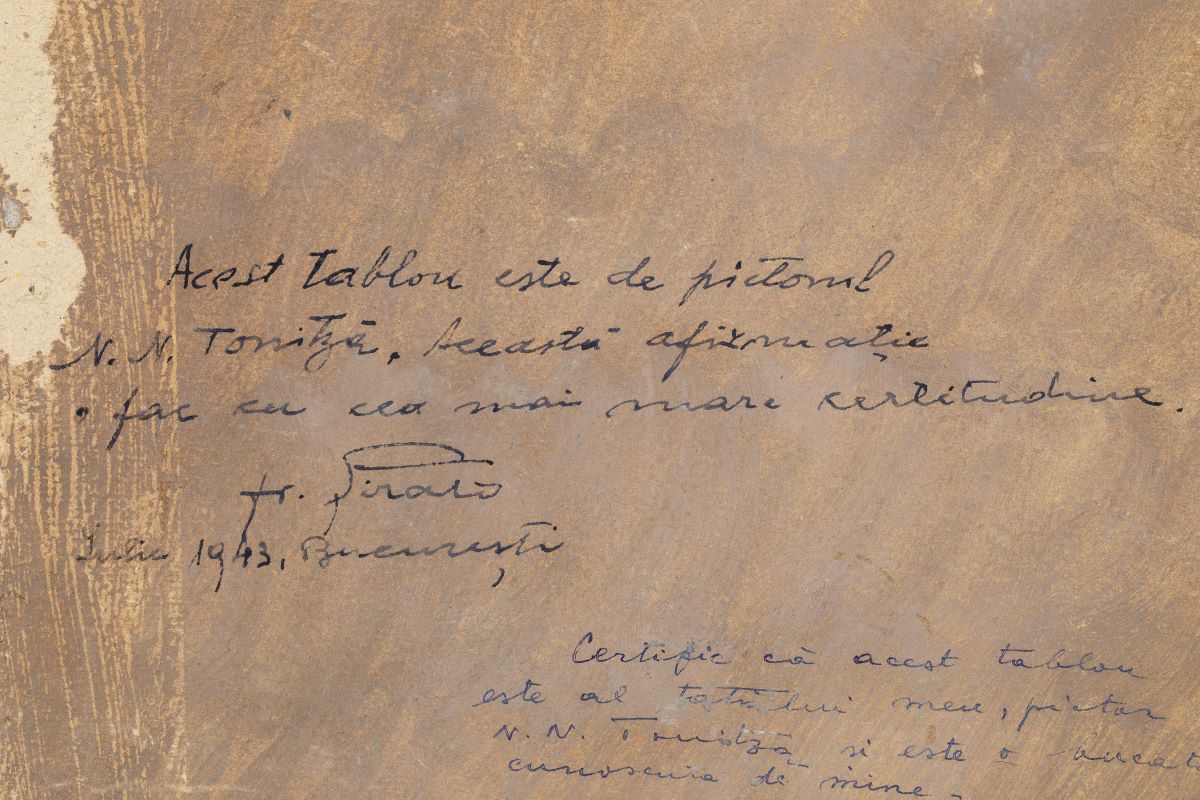 Acest tablou este de pictorul
N. N. Tonitză. Această afirmație
o fac cu cea mai mare certitudine.
Fr. Șirato
Iulie 1943, București
Certific că acest tablou
este al tatălui meu, pictor
N. N. Tonitză și este o bucată
cunoscuta de mine.